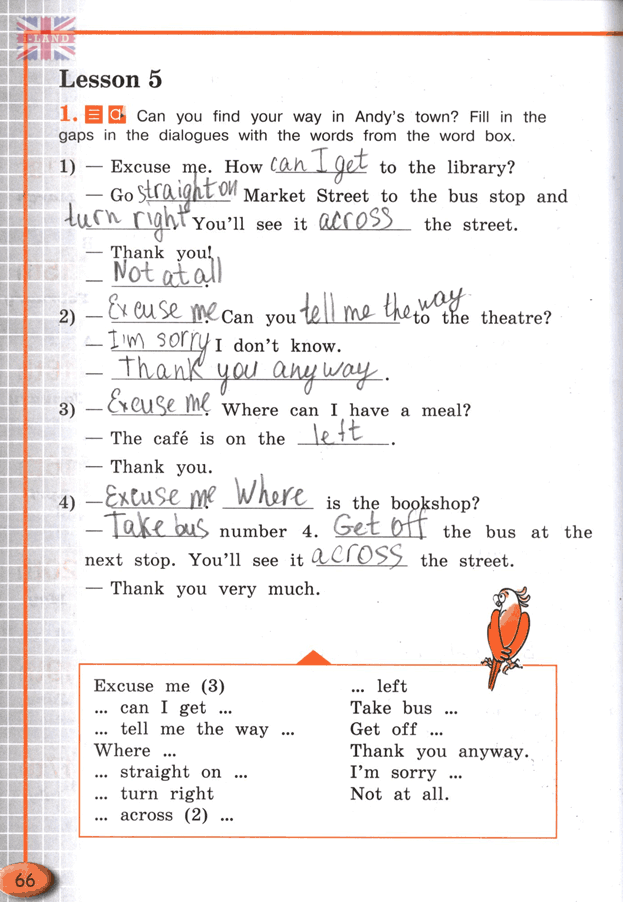 I-LAND
Lesson 5
1. Can you find your way in Andy's town? Fill in the
gaps in the dialogues with the words from the word box.
1) — Excuse me. How can I get to the library?
— Go straight on Market Street to the bus stop and
turn right You'll see it across the street.
— Thank you!
— Not at all.
2) — Excuse me. Can you tell me the way to the theatre?
— I'm sorry I don't know.
— Thank you anyway.
3) — Excuse me. Where can I have a meal?
— The café is on the left.
— Thank you.
4) — Excuse me. Where is the bookshop?
— Take bus number 4. Get off the bus at the
next stop. You'll see it across the street.
— Thank you very much.
Excuse me (3)
... can I get ...
... tell me the way ...
Where ...
... straight on ...
... turn right
... across (2) ...
... left
Take bus ...
Get off ...
Thank you anyway.
I'm sorry ...
Not at all.
66